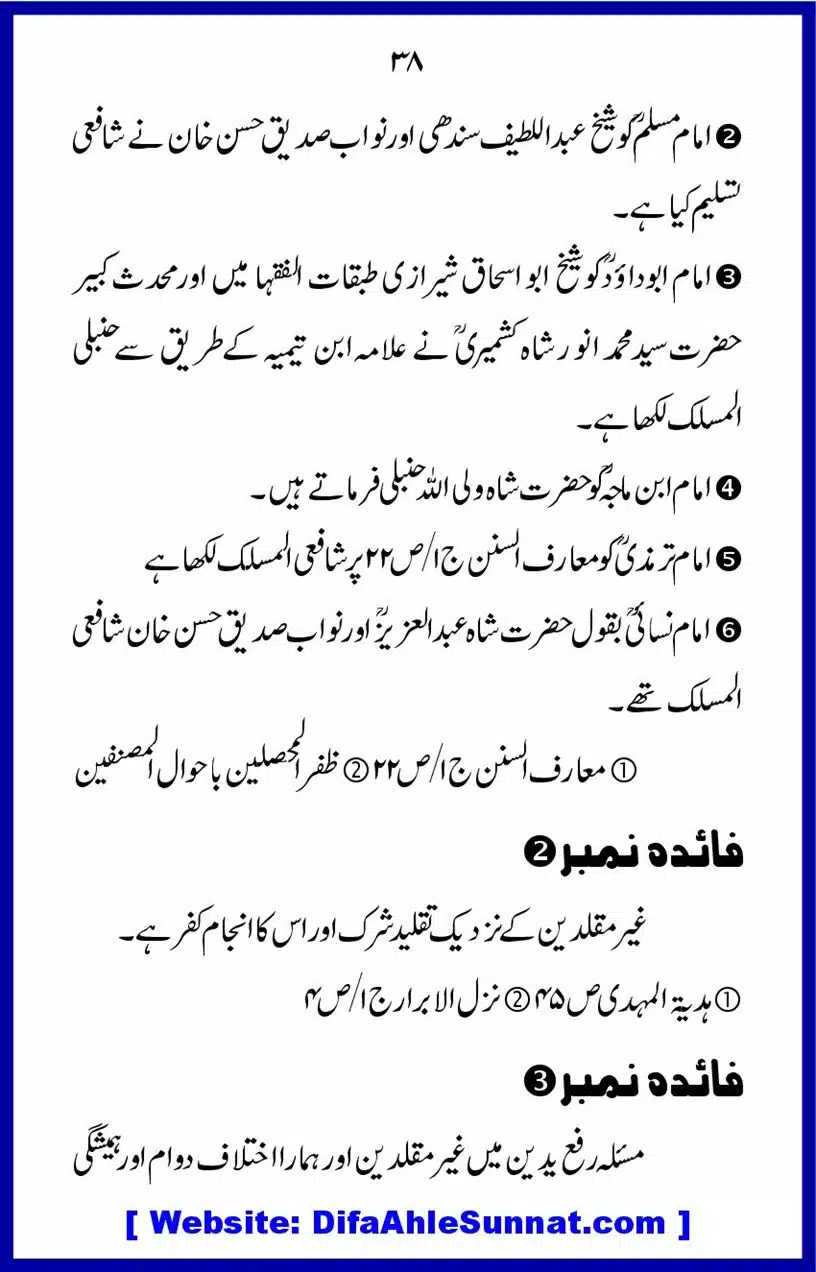 ۳۸
❷ امام مسلمؒ کو شیخ عبداللطیف سندھی اور نواب صدیق حسن خان نے شافعی
تسلیم کیا ہے۔
❸ امام ابوداؤدؒ کو شیخ ابو اسحاق شیرازی طبقات الفقہا میں اور محدث کبیر
حضرت سید محمد انور شاہ کشمیریؒ نے علامہ ابن تیمیہ کے طریق سے حنبلی
المسلک لکھا ہے۔
❹ امام ابن ماجہؒ کو حضرت شاہ ولی اللہ حنبلی فرماتے ہیں۔
❺ امام ترمذیؒ کو معارف السنن ج۱/ص۲۲ پر شافعی المسلک لکھا ہے
❻ امام نسائیؒ بقول حضرت شاہ عبدالعزیزؒ اور نواب صدیق حسن خان شافعی
المسلک تھے۔
① معارف السنن ج۱/ص۲۲ ② ظفر المحصلین باحوال المصنفین
فائدہ نمبر❷
غیر مقلدین کے نزدیک تقلید شرک اور اس کا انجام کفر ہے۔
① ہدیۃ المہدی ص۴۵ ② نزل الابرار ج۱/ص۴
فائدہ نمبر❸
مسئلہ رفع یدین میں غیر مقلدین اور ہمارا اختلاف دوام اور ہمیشگی
[ Website: DifaAhleSunnat.com ]